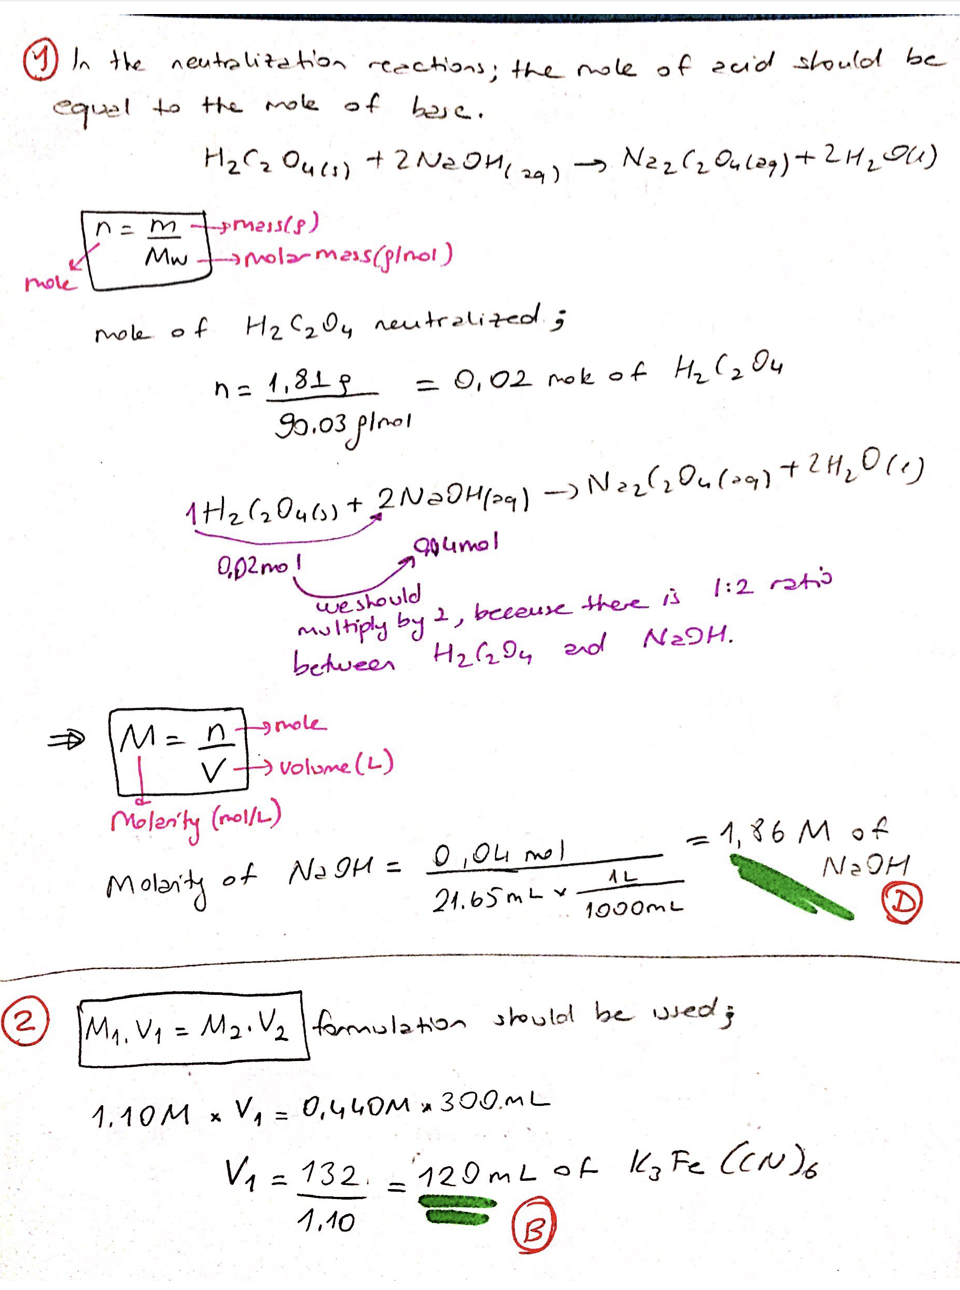 1) In the neutralization reactions; the mole of acid should be
equal to the mole of base.
H2C2O4(s) + 2NaOH(aq) → Na2C2O4(aq) + 2H2O(l)
n = m/Mw
→ mass(g)
→ molar mass(g/mol)
mole
mole of H2C2O4 neutralized;
n = 1,81 g / 90.03 g/mol = 0,02 mole of H2C2O4
1H2C2O4(s) + 2NaOH(aq) → Na2C2O4(aq) + 2H2O(l)
0,02mol
0,04mol
we should
multiply by 2, because there is 1:2 ratio
between H2C2O4 and NaOH.
⇒ M = n/V
→ mole
→ volume(L)
Molarity (mol/L)
Molarity of NaOH = 0,04 mol / 21.65mL × 1L/1000mL = 1,86 M of
NaOH
D
2 M1.V1 = M2.V2 formulation should be used;
1.10M × V1 = 0,440M × 300.mL
V1 = 132./1.10 = 120mL of K3Fe(CN)6
B